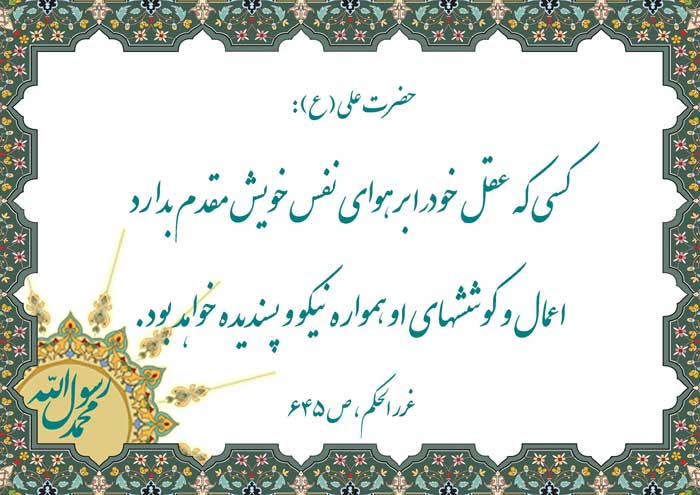 حضرت علی (ع):
کسی که عقل خود را بر هوای نفس خویش مقدم بدارد
اعمال و کوششهای او همواره نیکو و پسندیده خواهد بود.
غرر الحکم، ص ۶۴۵
محمد رسول الله